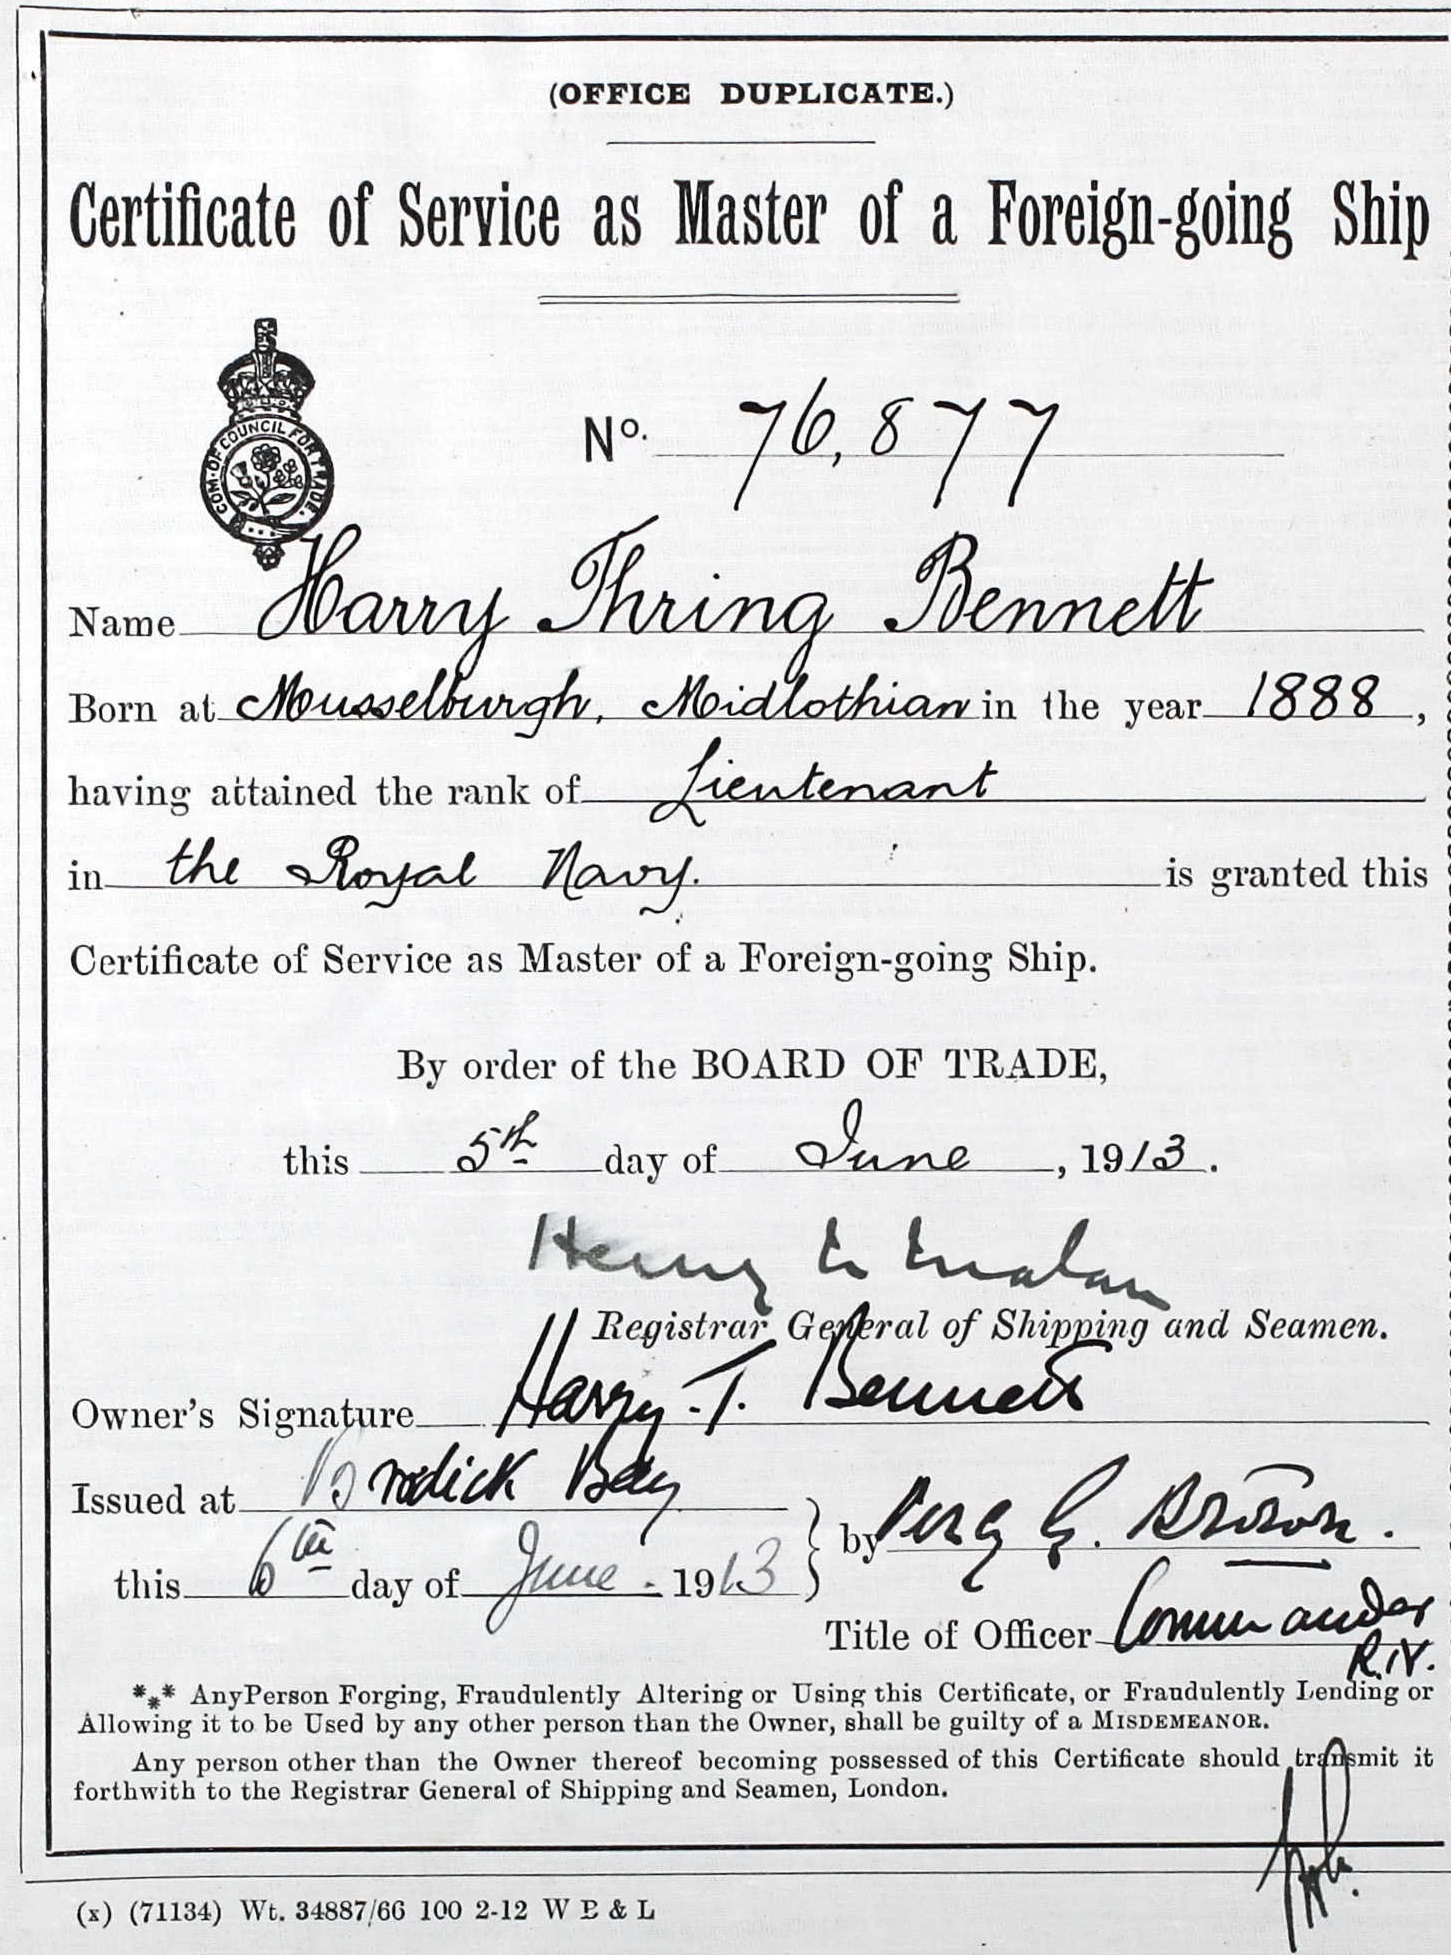 (OFFICE DUPLICATE.)
Certificate of Service as Master of a Foreign-going Ship
COM·OF·COUNCIL FOR TRADE.
No. 76,877
Name Harry Thring Bennett
Born at Musselburgh, Midlothian in the year 1888,
having attained the rank of Lieutenant
in the Royal Navy. is granted this
Certificate of Service as Master of a Foreign-going Ship.
By order of the BOARD OF TRADE,
this 5th day of June, 1913.
Henry N Malan
Registrar General of Shipping and Seamen.
Owner's Signature Harry. T. Bennett
Issued at Brodick Bay
by Percy G. Brown.
this 6th day of June. 1913
Title of Officer Commander
R.N.
*** AnyPerson Forging, Fraudulently Altering or Using this Certificate, or Fraudulently Lending or
Allowing it to be Used by any other person than the Owner, shall be guilty of a MISDEMEANOR.
Any person other than the Owner thereof becoming possessed of this Certificate should transmit it
forthwith to the Registrar General of Shipping and Seamen, London.
(x) (71134) Wt. 34887/66 100 2-12 W B & L